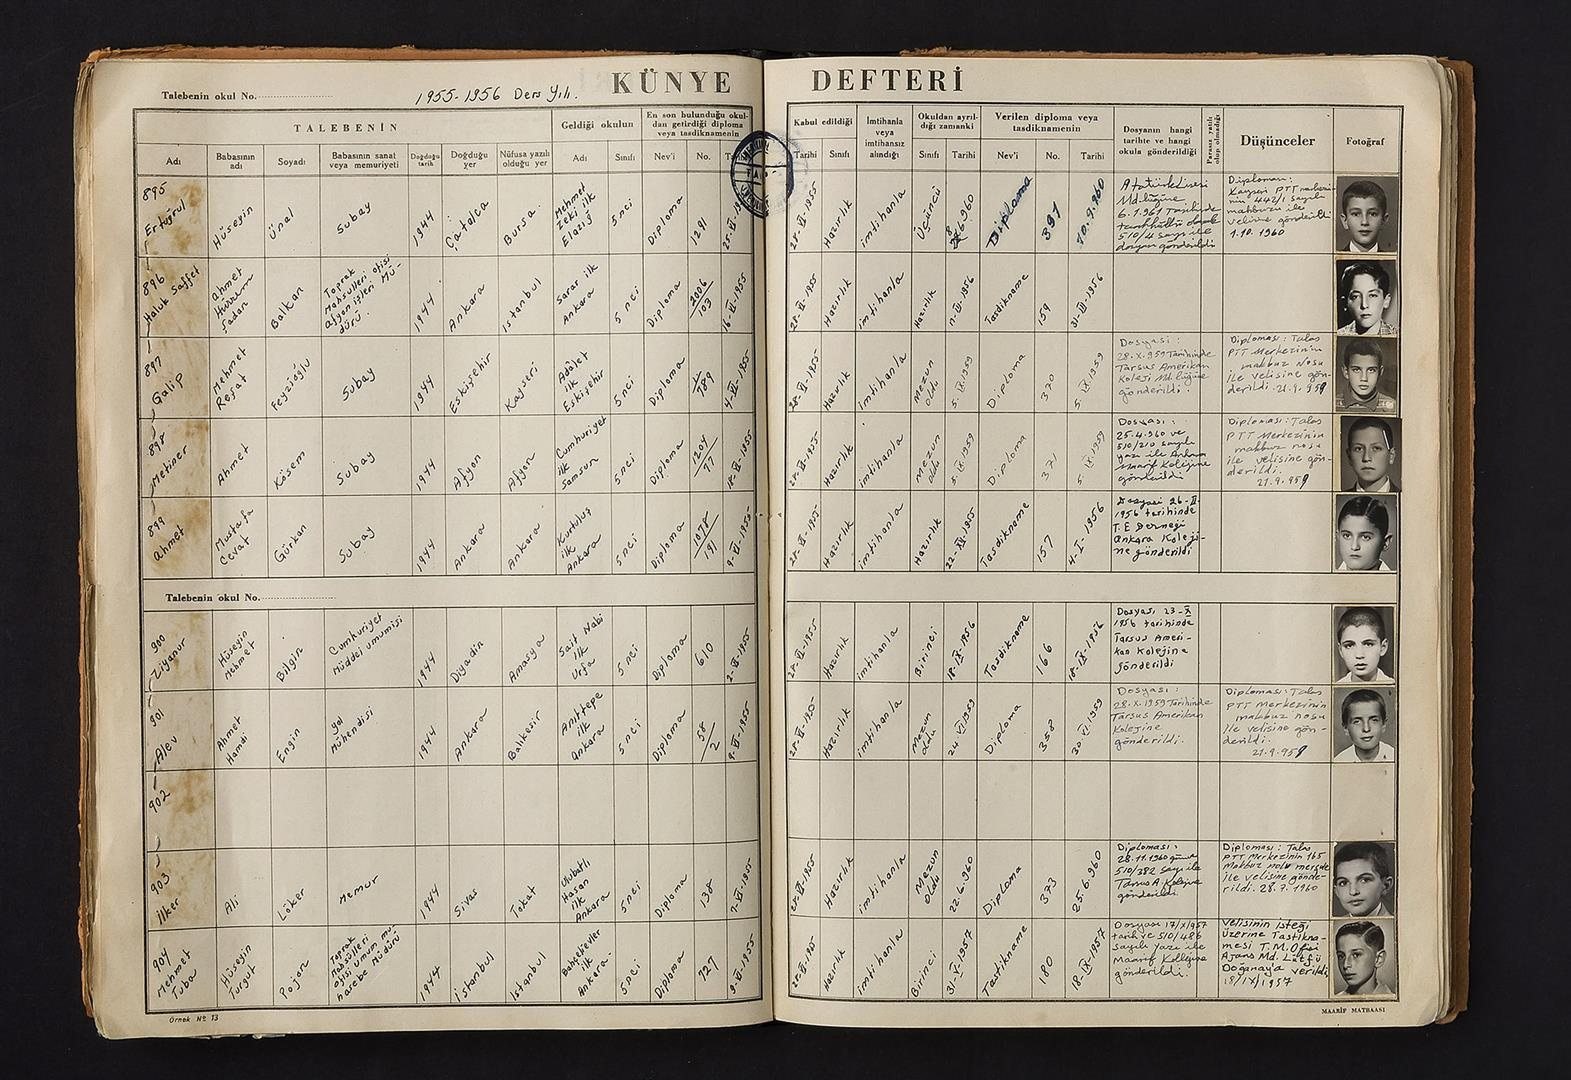 KÜNYE DEFTERİ
Talebenin okul No.
1955-1956 Ders Yılı.
TALEBENİN
Geldiği okulun
En son bulunduğu okul-
dan getirdiği diploma
veya tasdiknamenin
Kabul edildiği
İmtihanla
veya
imtihansız
alındığı
Okuldan ayrıl-
dığı zamanki
Verilen diploma veya
tasdiknamenin
Dosyanın hangi
tarihte ve hangi
okula gönderildiği
Parasız yatılı
olup olmadığı
Düşünceler
Fotoğraf
Adı
Babasının
adı
Soyadı
Babasının sanat
veya memuriyeti
Doğduğu
tarih
Doğduğu
yer
Nüfusa yazılı
olduğu yer
Adı
Sınıfı
Nev'i
No.
Tarihi
Sınıfı
Sınıfı
Tarihi
Nev'i
No.
Tarihi
895
Ertuğrul
Hüseyin
Ünal
Subay
1944
Çatalca
Bursa
Mehmet
Zeki ilk
Elazığ
5 nci
Diploma
1291
25-VI-1955
28-VI-1955
Hazırlık
imtihanla
Üçüncü
6.960
Diploma
391
10.9.960
Atatürk Lisesi
Md.lüğüne
6.1.961 Tarihinde
510/4 sayı ile
dosyası gönderildi
Diploması:
Kayseri PTT merkezi-
nin 442/1 sayılı
makbuzu ile
velisine gönderildi
1.10.1960
896
Haluk Saffet
Ahmet
Şadan
Balkan
Toprak
Mahsulleri ofisi
afyon işleri Mü-
dürü.
1944
Ankara
İstanbul
Sarar ilk
Ankara
5 nci
Diploma
2006
103
16-VI-1955
28-VI-1955
Hazırlık
imtihanla
Hazırlık
Tasdikname
159
31-VII-1956
897
Galip
Mehmet
Reşat
Feyzioğlu
Subay
1944
Eskişehir
Kayseri
Adalet
ilk
Eskişehir
5 nci
Diploma
11
789
4-VI-1955
28-VI-1955
Hazırlık
imtihanla
Mezun
oldu
5.IX.1959
Diploma
370
5.IX.1959
Dosyası:
28.X.1959 Tarihinde
Tarsus Amerikan
Koleji Md.lüğüne
gönderildi.
Diploması: Talas
PTT Merkezinin
makbuz Nosu
ile velisine gön-
derildi. 21.9.959
898
Metiner
Ahmet
Kösem
Subay
1944
Afyon
Afyon
Cumhuriyet
ilk
Samsun
5 nci
Diploma
1204
77
18-VI-1955
28-VI-1955
Hazırlık
imtihanla
Mezun
oldu
5.IX.1959
Diploma
371
5.IX.1959
Dosyası:
25.4.960 ve
510/210 sayılı
yazı ile Ankara
Maarif Kolejine
gönderildi
Diploması: Talas
PTT Merkezinin
makbuz nosu
ile velisine gön-
derildi.
21.9.959
899
Ahmet
Mustafa
Cevat
Gürkan
Subay
1944
Ankara
Ankara
Kurtuluş
ilk
Ankara
5 nci
Diploma
1078
191
9-VI-1955
28-VI-1955
Hazırlık
imtihanla
Hazırlık
22-XII-1955
Tasdikname
157
4-I-1956
Dosyası 26-II-
1956 tarihinde
T.E Derneği
Ankara Koleji-
ne gönderildi
Talebenin okul No.
900
Ziyanur
Hüseyin
Mehmet
Bilgin
Cumhuriyet
Müddei umumisi
1944
Diyadin
Amasya
Sait Nabi
ilk
Urfa
5 nci
Diploma
610
2-VI-1955
28-VI-1955
Hazırlık
imtihanla
Birinci
18-IX-1956
Tasdikname
166
18-IX-1956
Dosyası 23-X
1956 tarihinde
Tarsus Ameri-
kan Kolejine
gönderildi
901
Alev
Ahmet
Hamdi
Engin
yol
Mühendisi
1944
Ankara
Balıkesir
Anıttepe
ilk
Ankara
5 nci
Diploma
58
2
9-VI-1955
28-VI-1955
Hazırlık
imtihanla
Mezun
oldu
24.VI.1959
Diploma
358
30.VI.1959
Dosyası:
28.X.1959 Tarihinde
Tarsus Amerikan
Kolejine
gönderildi.
Diploması: Talas
PTT Merkezinin
makbuz nosu
ile velisine gön-
derildi.
21.9.959
902
903
İlker
Ali
Löker
Memur
1944
Sivas
Tokat
Ulubatlı
Hasan
ilk
Ankara
5 nci
Diploma
138
7-VI-1955
28-VI-1955
Hazırlık
imtihanla
Mezun
oldu
22.6.1960
Diploma
373
25.6.1960
Diploması:
28.11.1960 gün ve
510/382 sayı ile
Tarsus A. Kolejine
gönderildi
Diploması: Talas
PTT Merkezinin 165
Makbuz nolu
ile velisine gönde-
rildi. 28.7.1960
904
Mehmet
Tuba
Hüseyin
Turgut
Pojon
Toprak
Mahsulleri
ofisi umum mu-
hasebe Müdürü
1944
İstanbul
İstanbul
Bahçelievler
ilk
Ankara-
5 nci
Diploma
727
9-VI-1955
28-VI-1955
Hazırlık
imtihanla
Birinci
31-V-1957
Tastikname
180
18-IX-1957
Dosyası 17/X/957
tarih ve 510/486
sayılı yazı ile
Maarif Kolejine
gönderildi.
Velisinin isteği
üzerine Tastikna-
mesi T.M.Ofisi
Ajans Md. Lütfü
Doğanay'a verildi
18/IX/1957
Örnek No 13
MAARİF MATBAASI